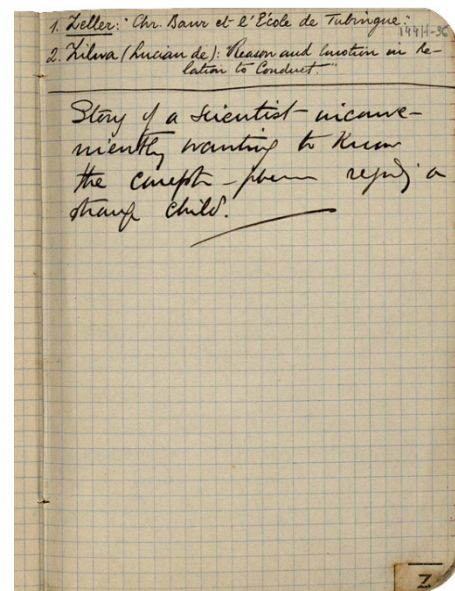 1. Zeller: "Chr. Baur et l'École de Tubingue."
144H-36
2. Zilwa (Lucian de): "Reason and Emotion in Re-
lation to Conduct."
Story of a scientist inconve-
niently wanting to know
the a
strange child.
Z